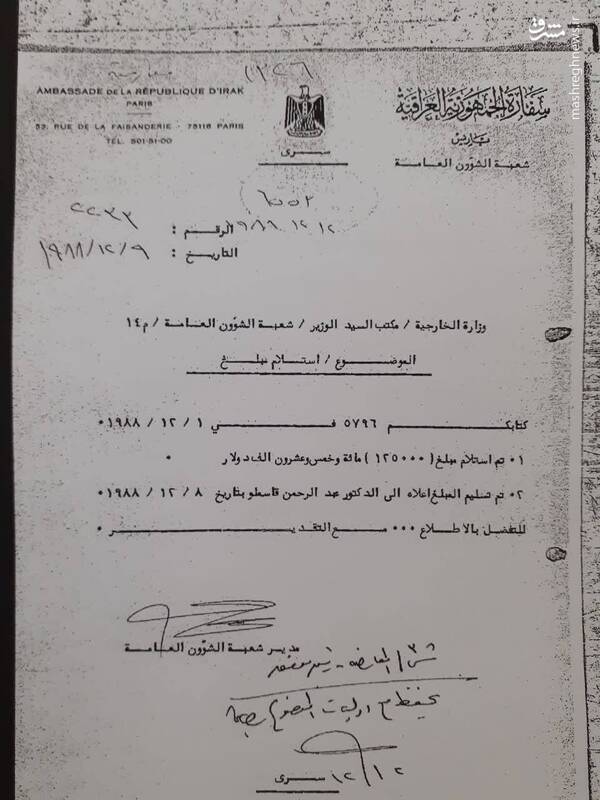 مشرق
mashreghnews.ir
AMBASSADE DE LA RÉPUBLIQUE D'IRAK
PARIS
53, RUE DE LA FAISANDERIE - 75116 PARIS
TEL. 501-51-00
سفارة الجمهورية العراقية
باريس
شعبة الشؤون العامة
سرى
٦٥٥٢
١٢ / ١٢
الرقم : ٢٢٣٣
التاريخ : ١٩٨٨/١٢/٩
وزارة الخارجية / مكتب السيد الوزير / شعبة الشؤون العامة / م١٤
الموضوع / استلام مبلغ
كتابكم ٥٧٩٦ في ١ / ١٢ / ١٩٨٨٠
٠١ تم استلام مبلغ ( ١٢٥٠٠٠ ) مائة وخمس وعشرون الف دولار ٠
٠٢ تم تسليم المبلغ اعلاه الى الدكتور عبد الرحمن قاسملو بتاريخ ٨ / ١٢ / ١٩٨٨ ٠
للتفضل بالاطلاع ٠٠٠ مع التقدير ٠
مدير شعبة الشؤون العامة
يحفظ مع اوليات الموضوع
١٢ / ١٢
سرى